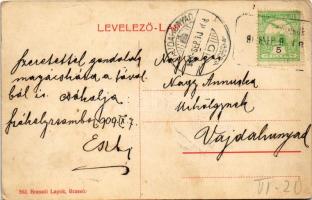 LEVELEZŐ-LAP
Szeretettel gondolok
magácskára a távol
ból is. csókolja
Székelyzsombor 909 IX 7.
Eszti
Nagyságos
Nagy Annuska
Úrhölgynek
Vajdahunyad
5
Brassói Lapok, Brassó
VI-20